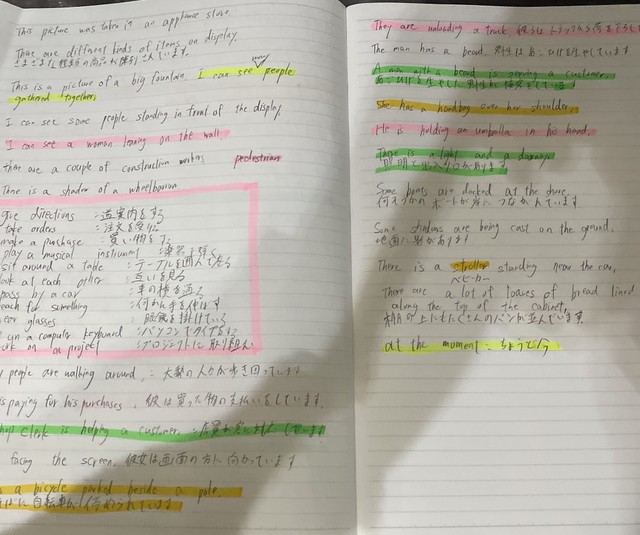 This picture was taken in an appliance store.
There are different kinds of items on display.
さまざまな種類の商品が陳列されています.
many
This is a picture of a big fountain. I can see people
gathered together.
I can see some people standing in front of the display
I can see a woman leaning on the wall.
there are a couple of construction workers pedestrian
There is a shadow of a wheelbarrow
give directions :道案内をする
take orders :注文を受ける
make a purchase :買い物をする
play a musical instrument :楽器を弾く
sit around a table :テーブルを囲んで座る
look at each other :互いを見る
pass by a car :車の横を通る
reach for something :何かに手を伸ばす
glasses :眼鏡を掛けている
on a computer keyboard :パソコンでタイプする
on a project :プロジェクトに取り組む
people are walking around, : 大勢の人々が歩き回っています
is paying for his purchases, 彼は買った物の支払いをしています.
shop clerk is helping a customer.
facing the screen. 彼女は画面の方に向かっています
a bicycle parked beside a pole.
に自転車が停められています
They are unloading a truck. 彼らはトラックから荷を
The man has a beard. 男性はあごひげを生やしています
A man with a beard is serving a customer.
あごひげを生やした男性が接客をしている
She has a handbag over her shoulder.
He is holding an umbrella in his hand.
There is a light and a
照明と
Some boats are docked at the shore.
何そうかのボートが岸につながれています
Some shadows are being cast on the ground.
地面に影があります
There is a stroller standing near the car,
ベビーカー
There are a lot of loaves of bread lined
along the top of the cabinet,
棚の上にたくさんのパンが並んでいます.
at the moment : ちょうど今